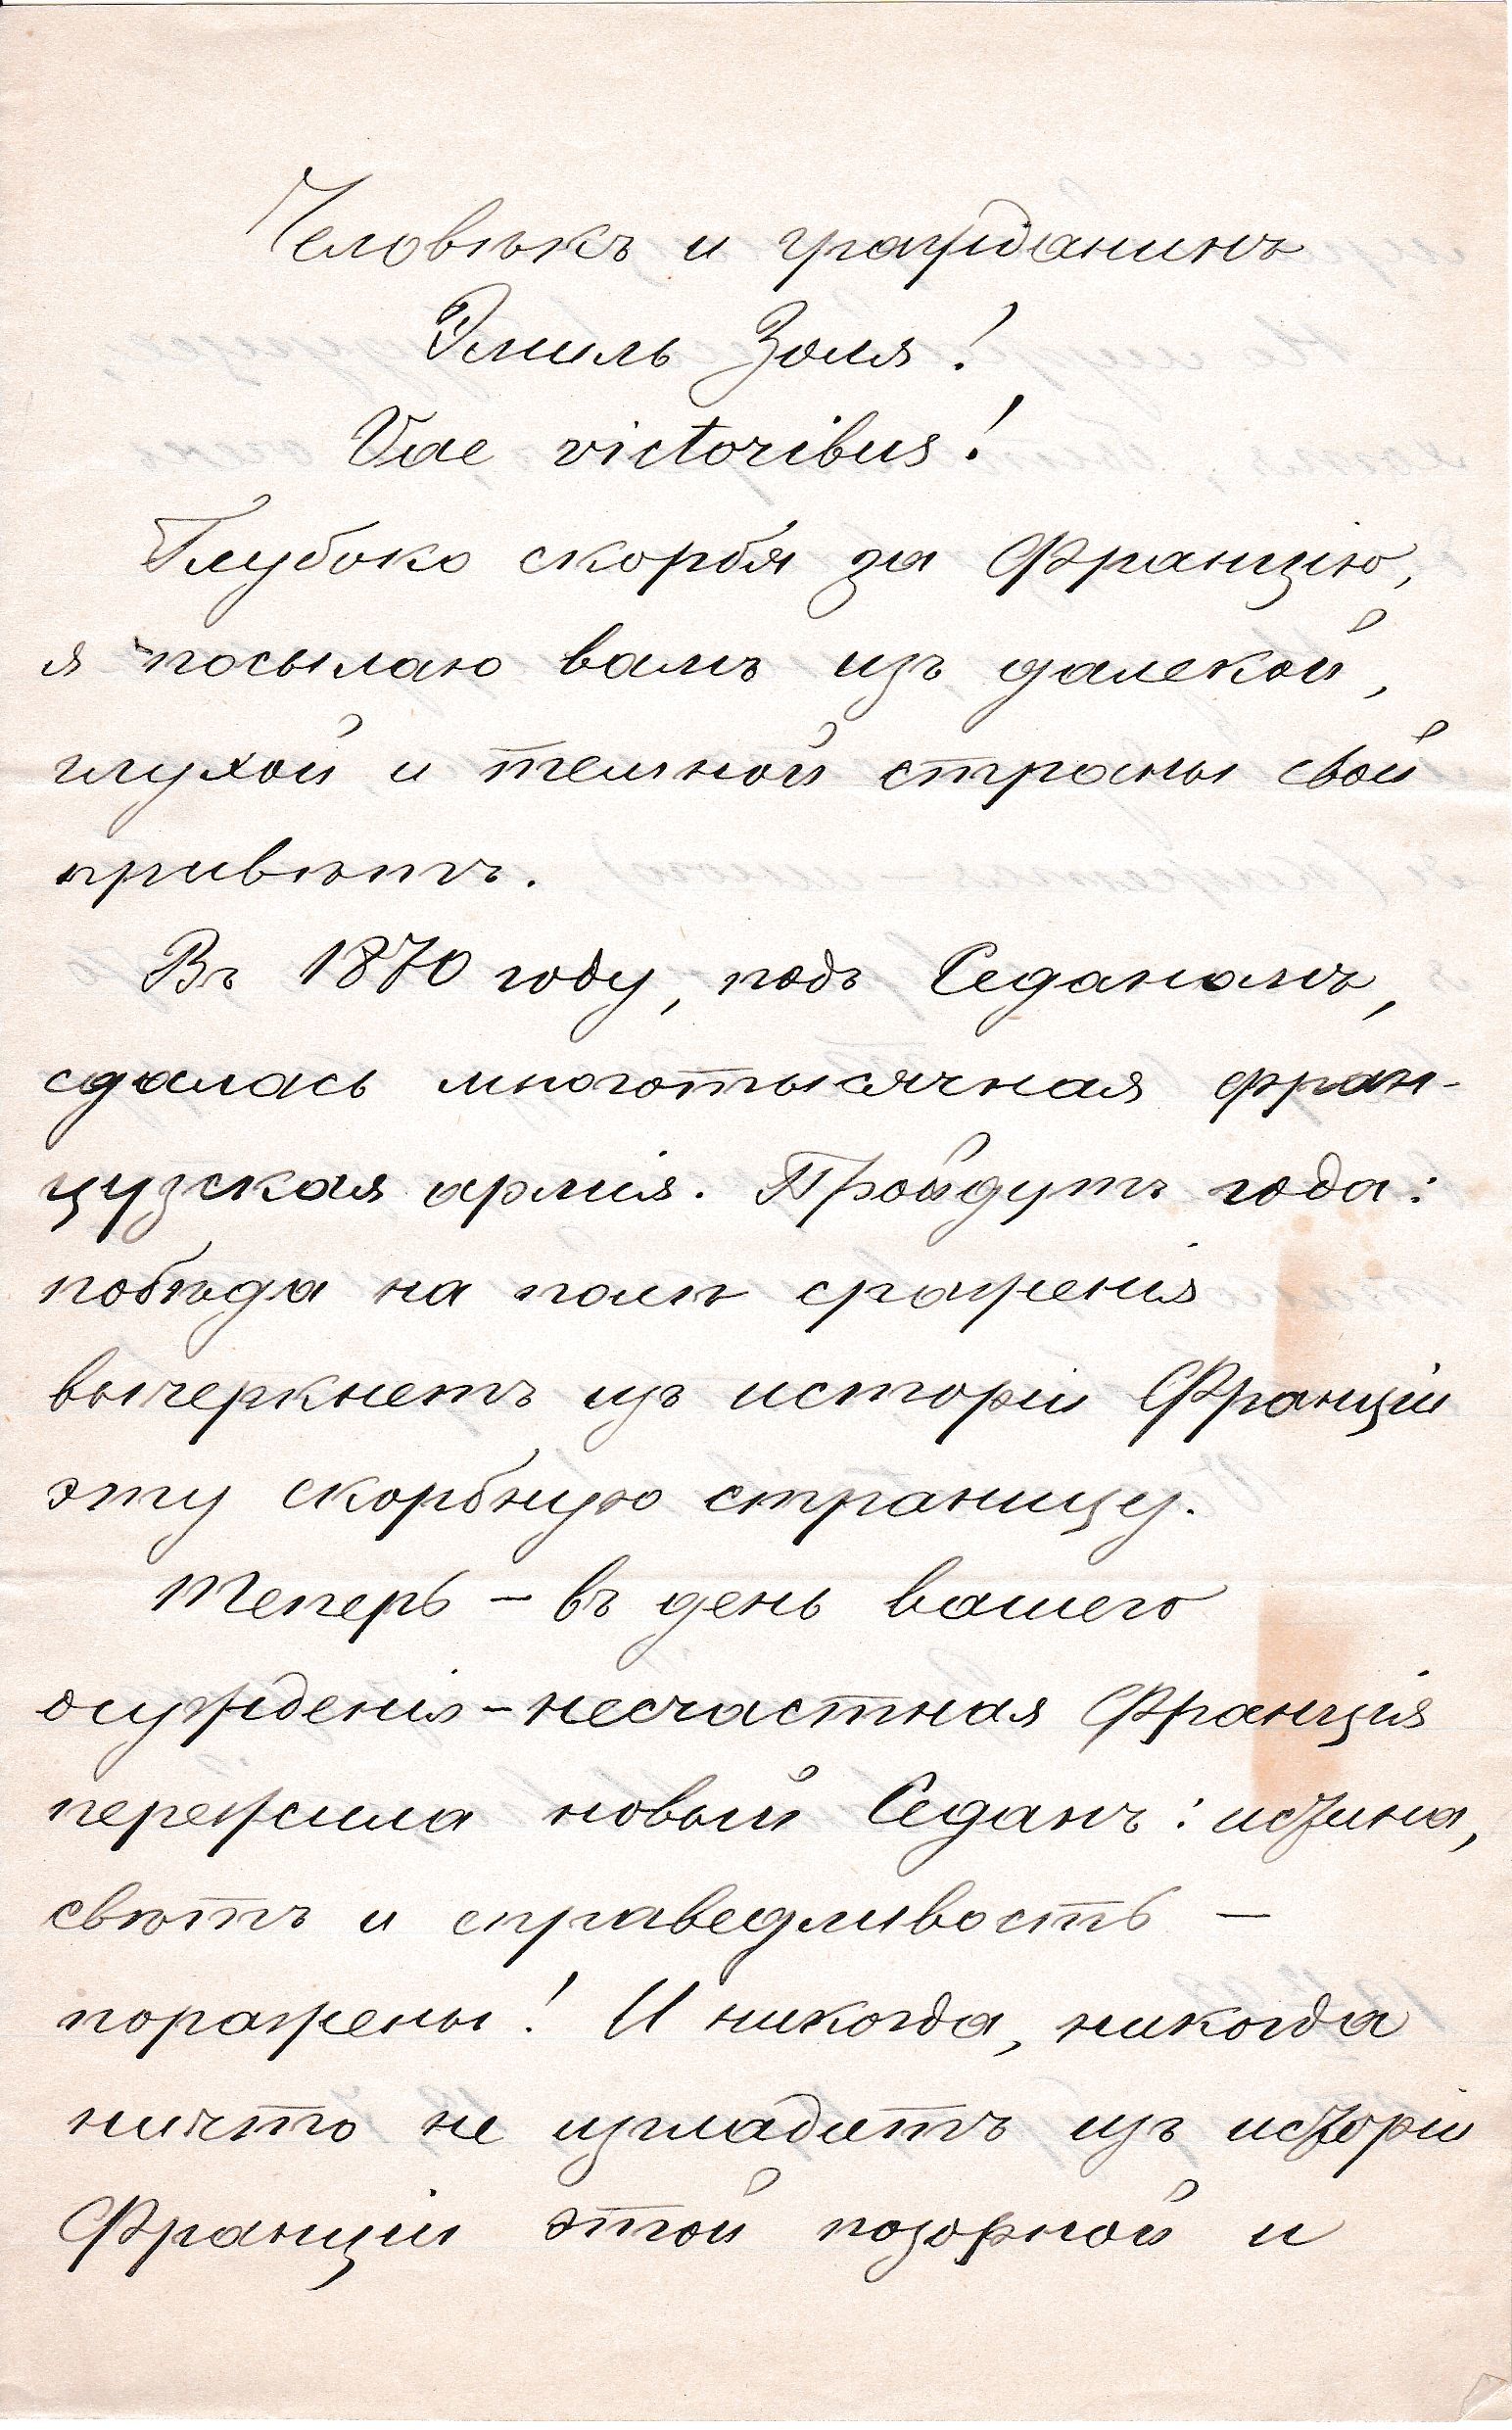 Человѣкъ и гражданинъ
Эмиль Золя!
Vae victoribus!
Глубоко скорбя за Францію,
я посылаю вамъ изъ далекой,
глухой и темной страны свой
привѣтъ.
Въ 1870 году, подъ Седаномъ,
сдалась многотысячная фран-
цузская армія. Пройдутъ года:
побѣда на полѣ сраженія
вычеркнетъ изъ исторіи Франціи
эту скорбную страницу.
Теперь – въ день вашего
осужденія – несчастная Франція
пережила новый Седанъ: истина,
свѣтъ и справедливость –
поражены! И никогда, никогда
ничто не изгладитъ изъ исторіи
Франціи этой позорной и